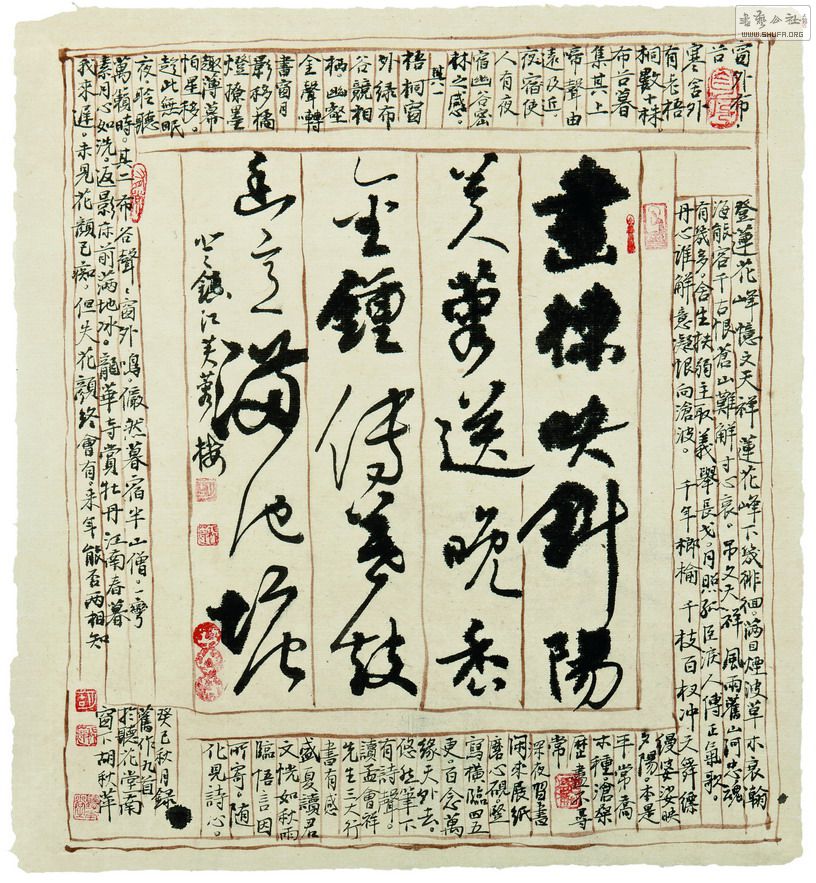 畫棟映斜陽
芙蓉送晚香
金鐘傳暮鼓
意滿池塘
登鎮江芙蓉樓
窗外布
谷
寒舍外
有老梧
桐數十株，
布谷暮
集其上
啼聲由
遠及近，
夜宿使
人有夜
宿幽谷密
林之感。
其一
梧桐窗
外綠布
谷競相
栖幽壑
金聲囀
書窗月
影移橘
燈撩墨
趣薄幕
怕星移。
趁此無眠
夜，聆聽
萬籟時。其二布谷聲聲窗外鳴，儼然暮宿半山僧。一彎
素月心如洗，返影床前滿地冰。龍華寺賞牡丹 江南春暮
我來遲，未見花顏已痴。但失花顏終會有，來年能否兩相知
登蓮花峰憶文天祥 蓮花峰下幾徘徊，滿目煙波草木哀。翰
海能容千古恨，蒼山難解寸心哀。弔文天祥 風雨舊山河，忠魂
有幾多。舍生扶弱主，取義舉長戈。月照孤臣淚，人傳正氣歌。
丹心誰解意，凝恨向滄波。 千年榔榆 千枝百杈沖天舞，縹
緲婆娑映
夕陽。本是
平常喬
木種，滄桑
歷盡不尋
常。
深夜習書
閑來展紙
磨心硯，
寫橫臨四五
更。百念萬
緣天外去，
悠然筆下
有詩聲。
讀孟會祥
先生三大行
書有感
盛夏讀君
文，恍如秋雨
臨。悟言因
所寄，隨
化見詩心。
癸巳秋月錄
舊作九首
於聽花堂南
窗下胡秋萍
書藝公社
WWW.SHUFA.ORG